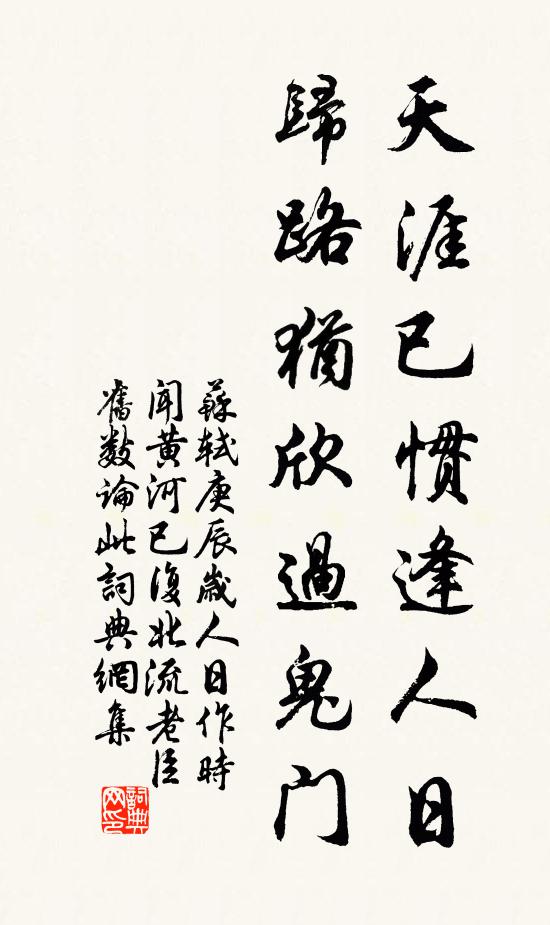 天涯已慣逢人日
歸路猶欣過鬼門
蘇軾庚辰歲人日作時
聞黄河已復北流老臣
舊數論此詞典網集
詞典
网印